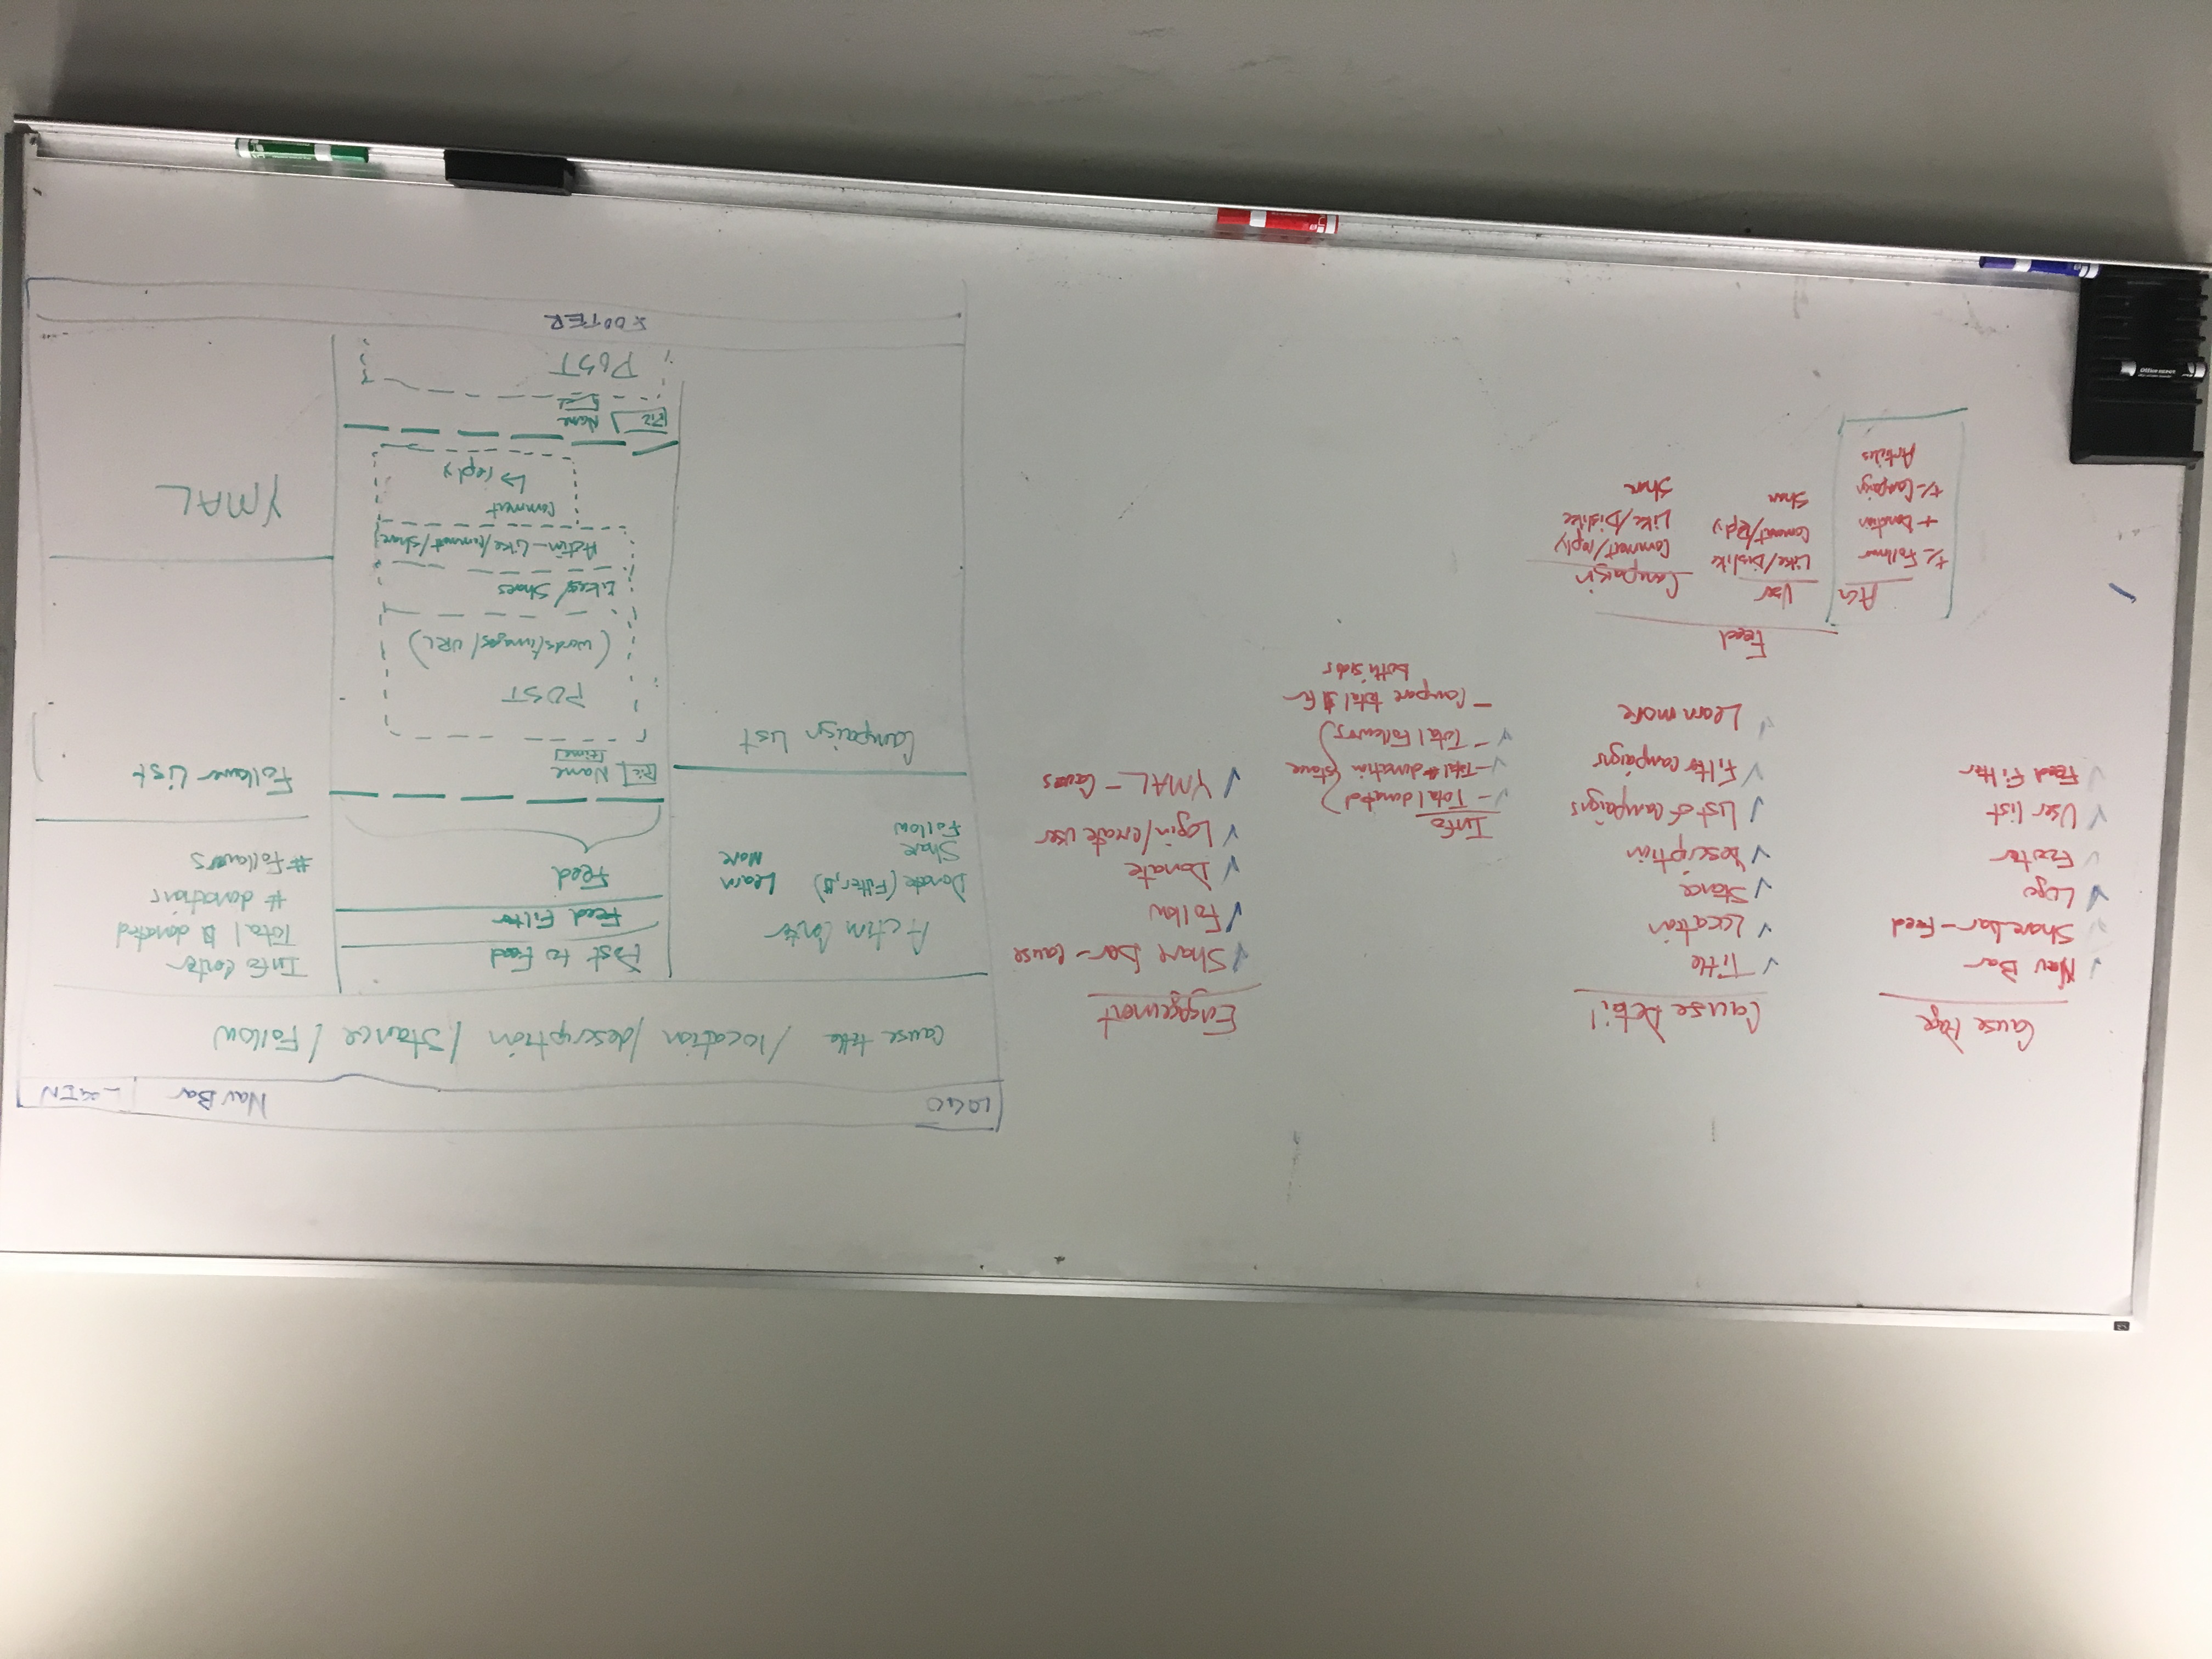 Cause Page
Nav Bar
Share bar - Feed
Logo
Footer
User list
Feed Filter
Cause Detail
Title
Location
Stance
Description
List of campaigns
Filter campaigns
Learn more
Info
- Total donated
- Total # donation } stance
- Total Followers
- Compare total $ for
both sides
Engagement
Share bar - cause
Follow
Donate
Login/create user
YMAL - Causes
Feed
+/- Follower
+ Donation
+/- Campaign
Articles
User
Like/Dislike
Comment/reply
Share
Campaign
Comment/reply
Like/Dislike
Share
LOGO Nav Bar LOGIN
Cause title /location /description /Stance /Follow
Action Center
Donate (Filter, $) Learn
More
Share
Follow
Campaign List
Post to Feed
Feed Filter
Feed
Pic Name
time
POST
(words/images/URL)
Likes/Shares
Action - Like/comment/share
Comment
↳ reply
Pic Name
POST
Info Center
Total $ donated
# donations
# Followers
Follower List
YMAL
FOOTER